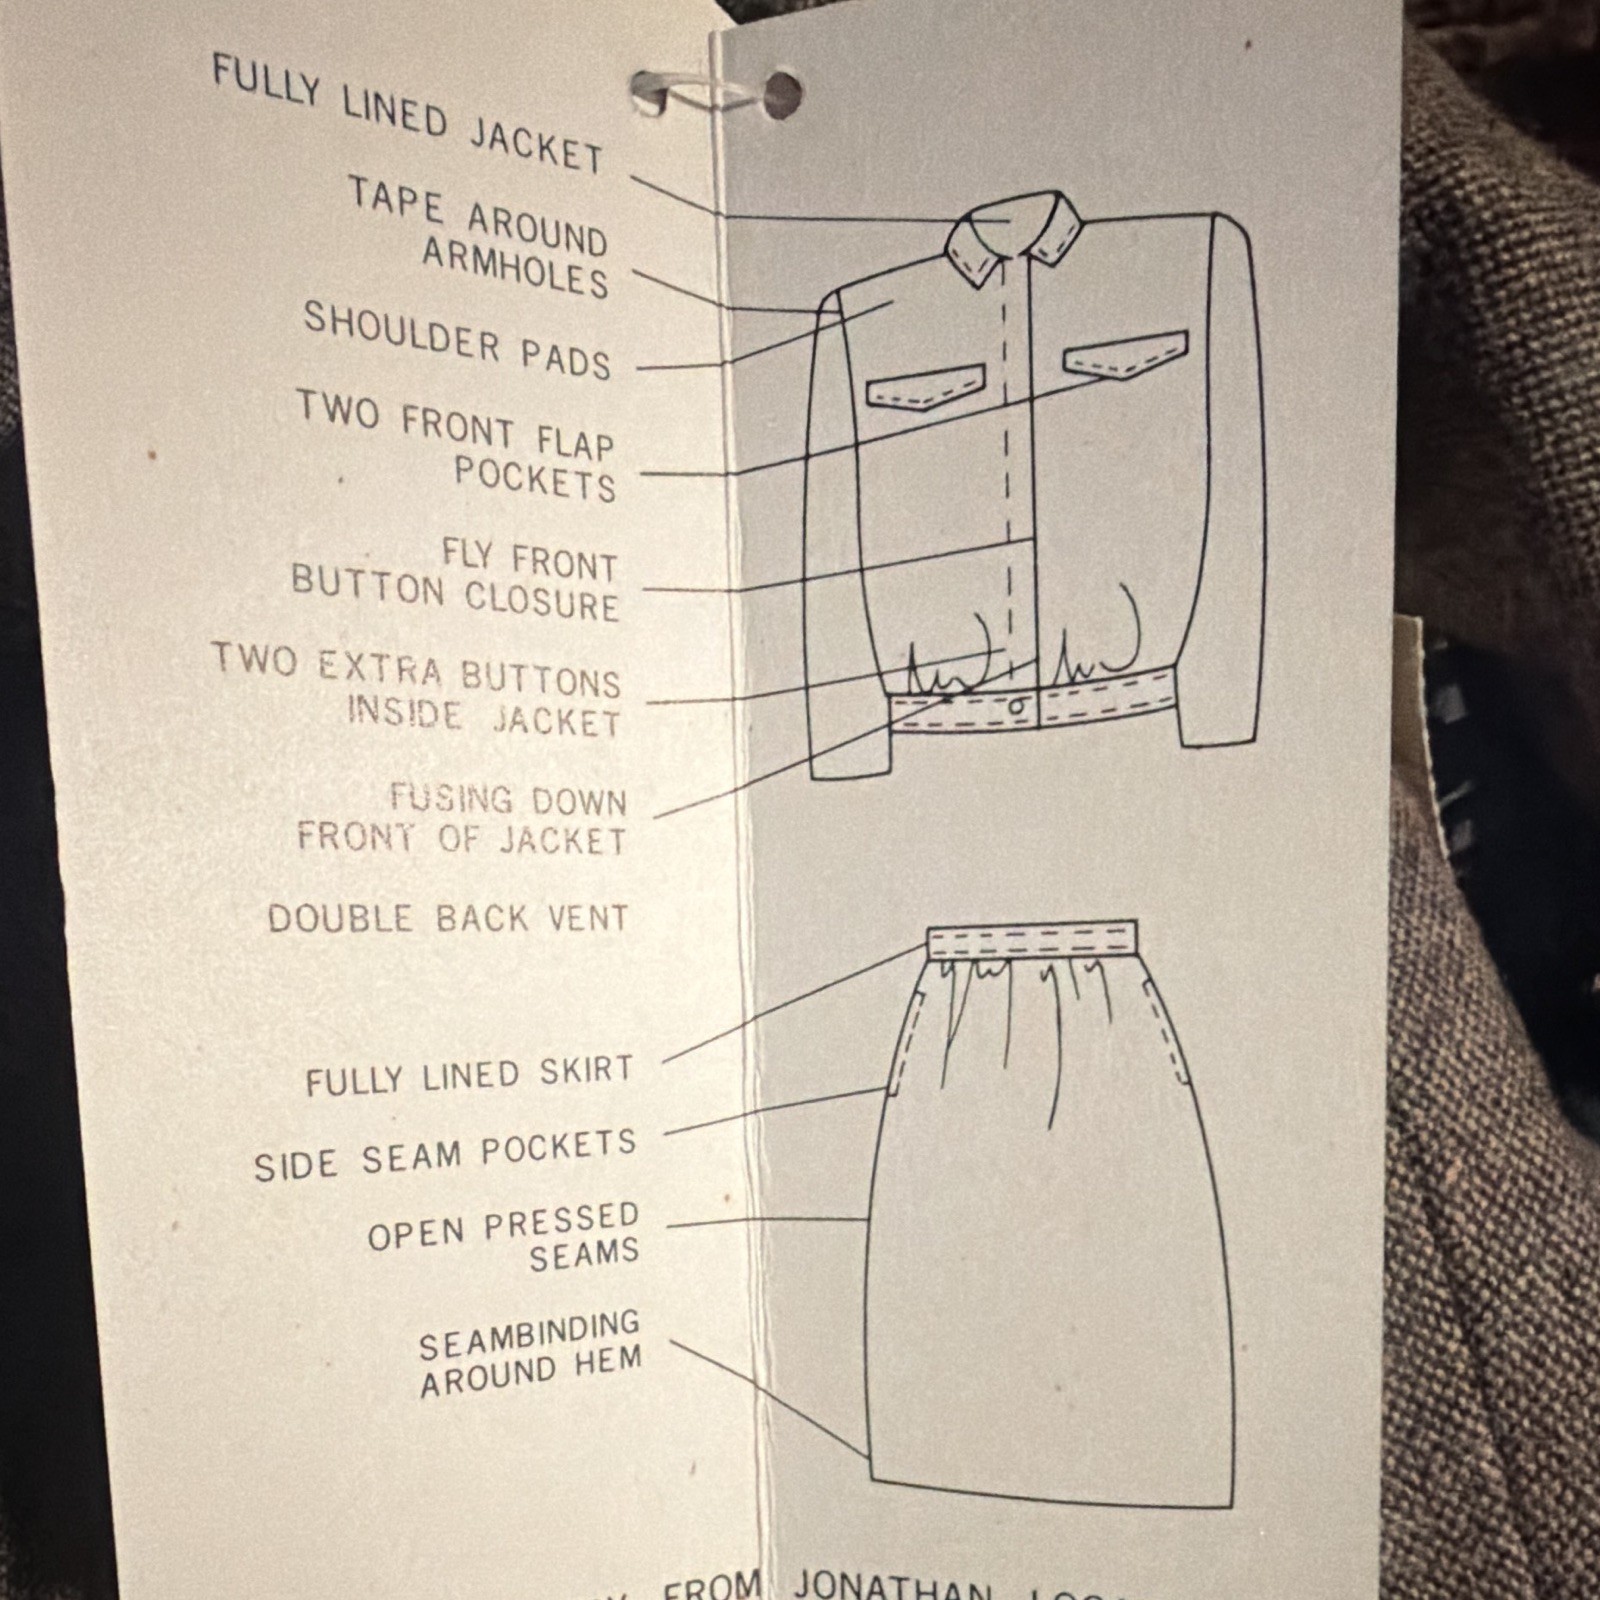 FULLY LINED JACKET
TAPE AROUND
ARMHOLES
SHOULDER PADS
TWO FRONT FLAP
POCKETS
FLY FRONT
BUTTON CLOSURE
TWO EXTRA BUTTONS
INSIDE JACKET
FUSING DOWN
FRONT OF JACKET
DOUBLE BACK VENT
FULLY LINED SKIRT
SIDE SEAM POCKETS
OPEN PRESSED
SEAMS
SEAMBINDING
AROUND HEM
FROM JONATHAN